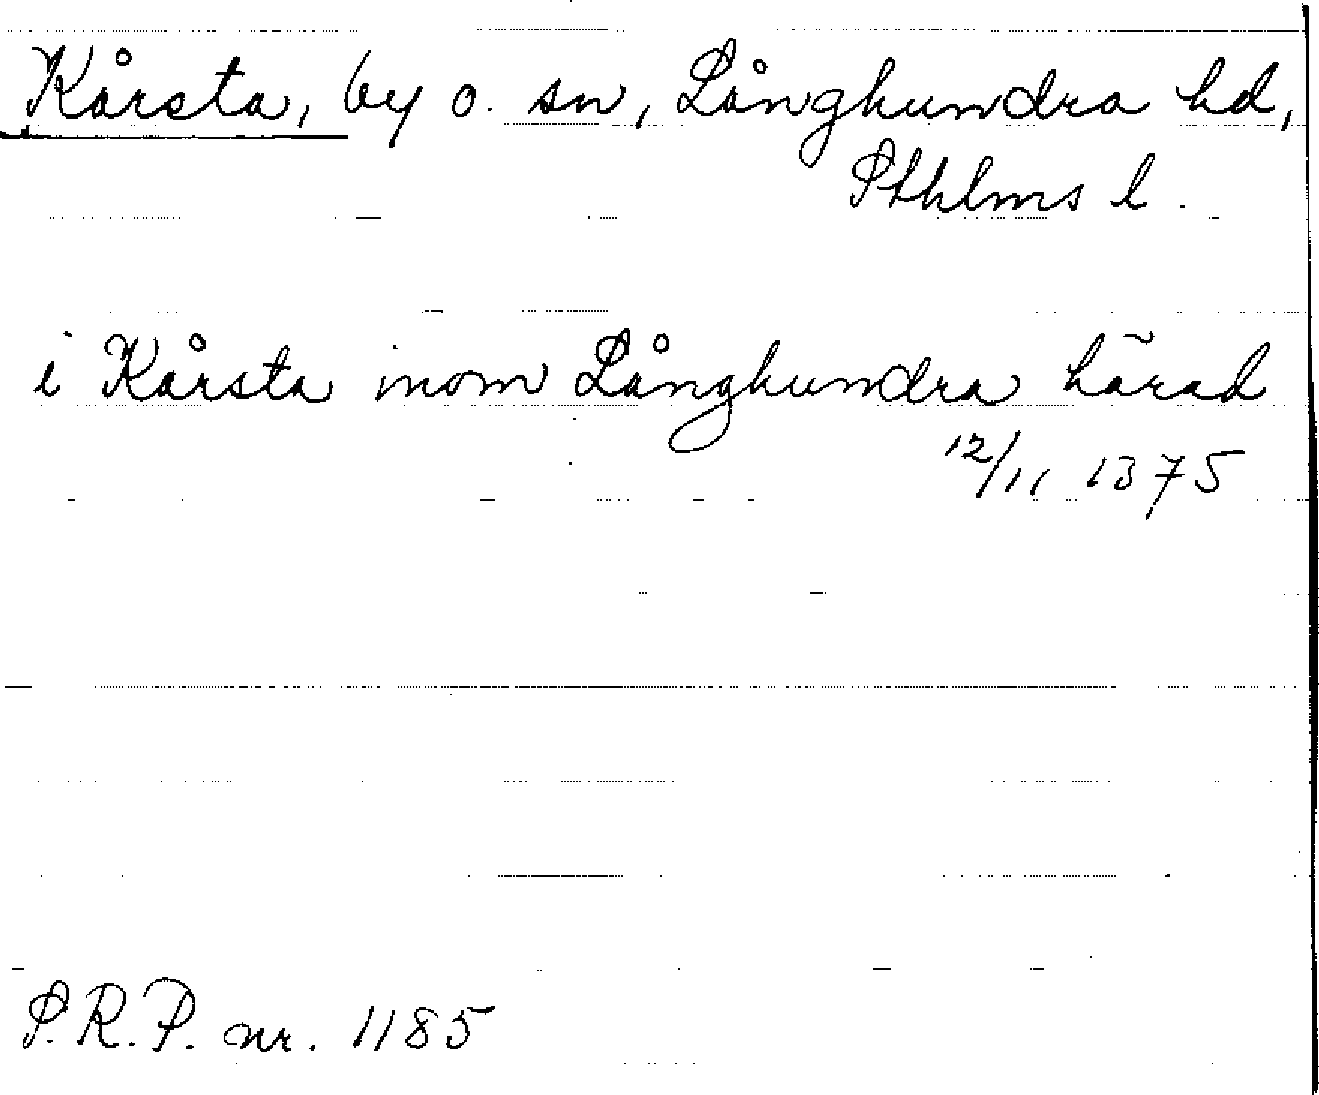 Kårsta, by o. sn, Långhundra hd,
Sthlms l.
i Kårsta inom Långhundra härad
12/11 1375
S.R.P. nr. 1185